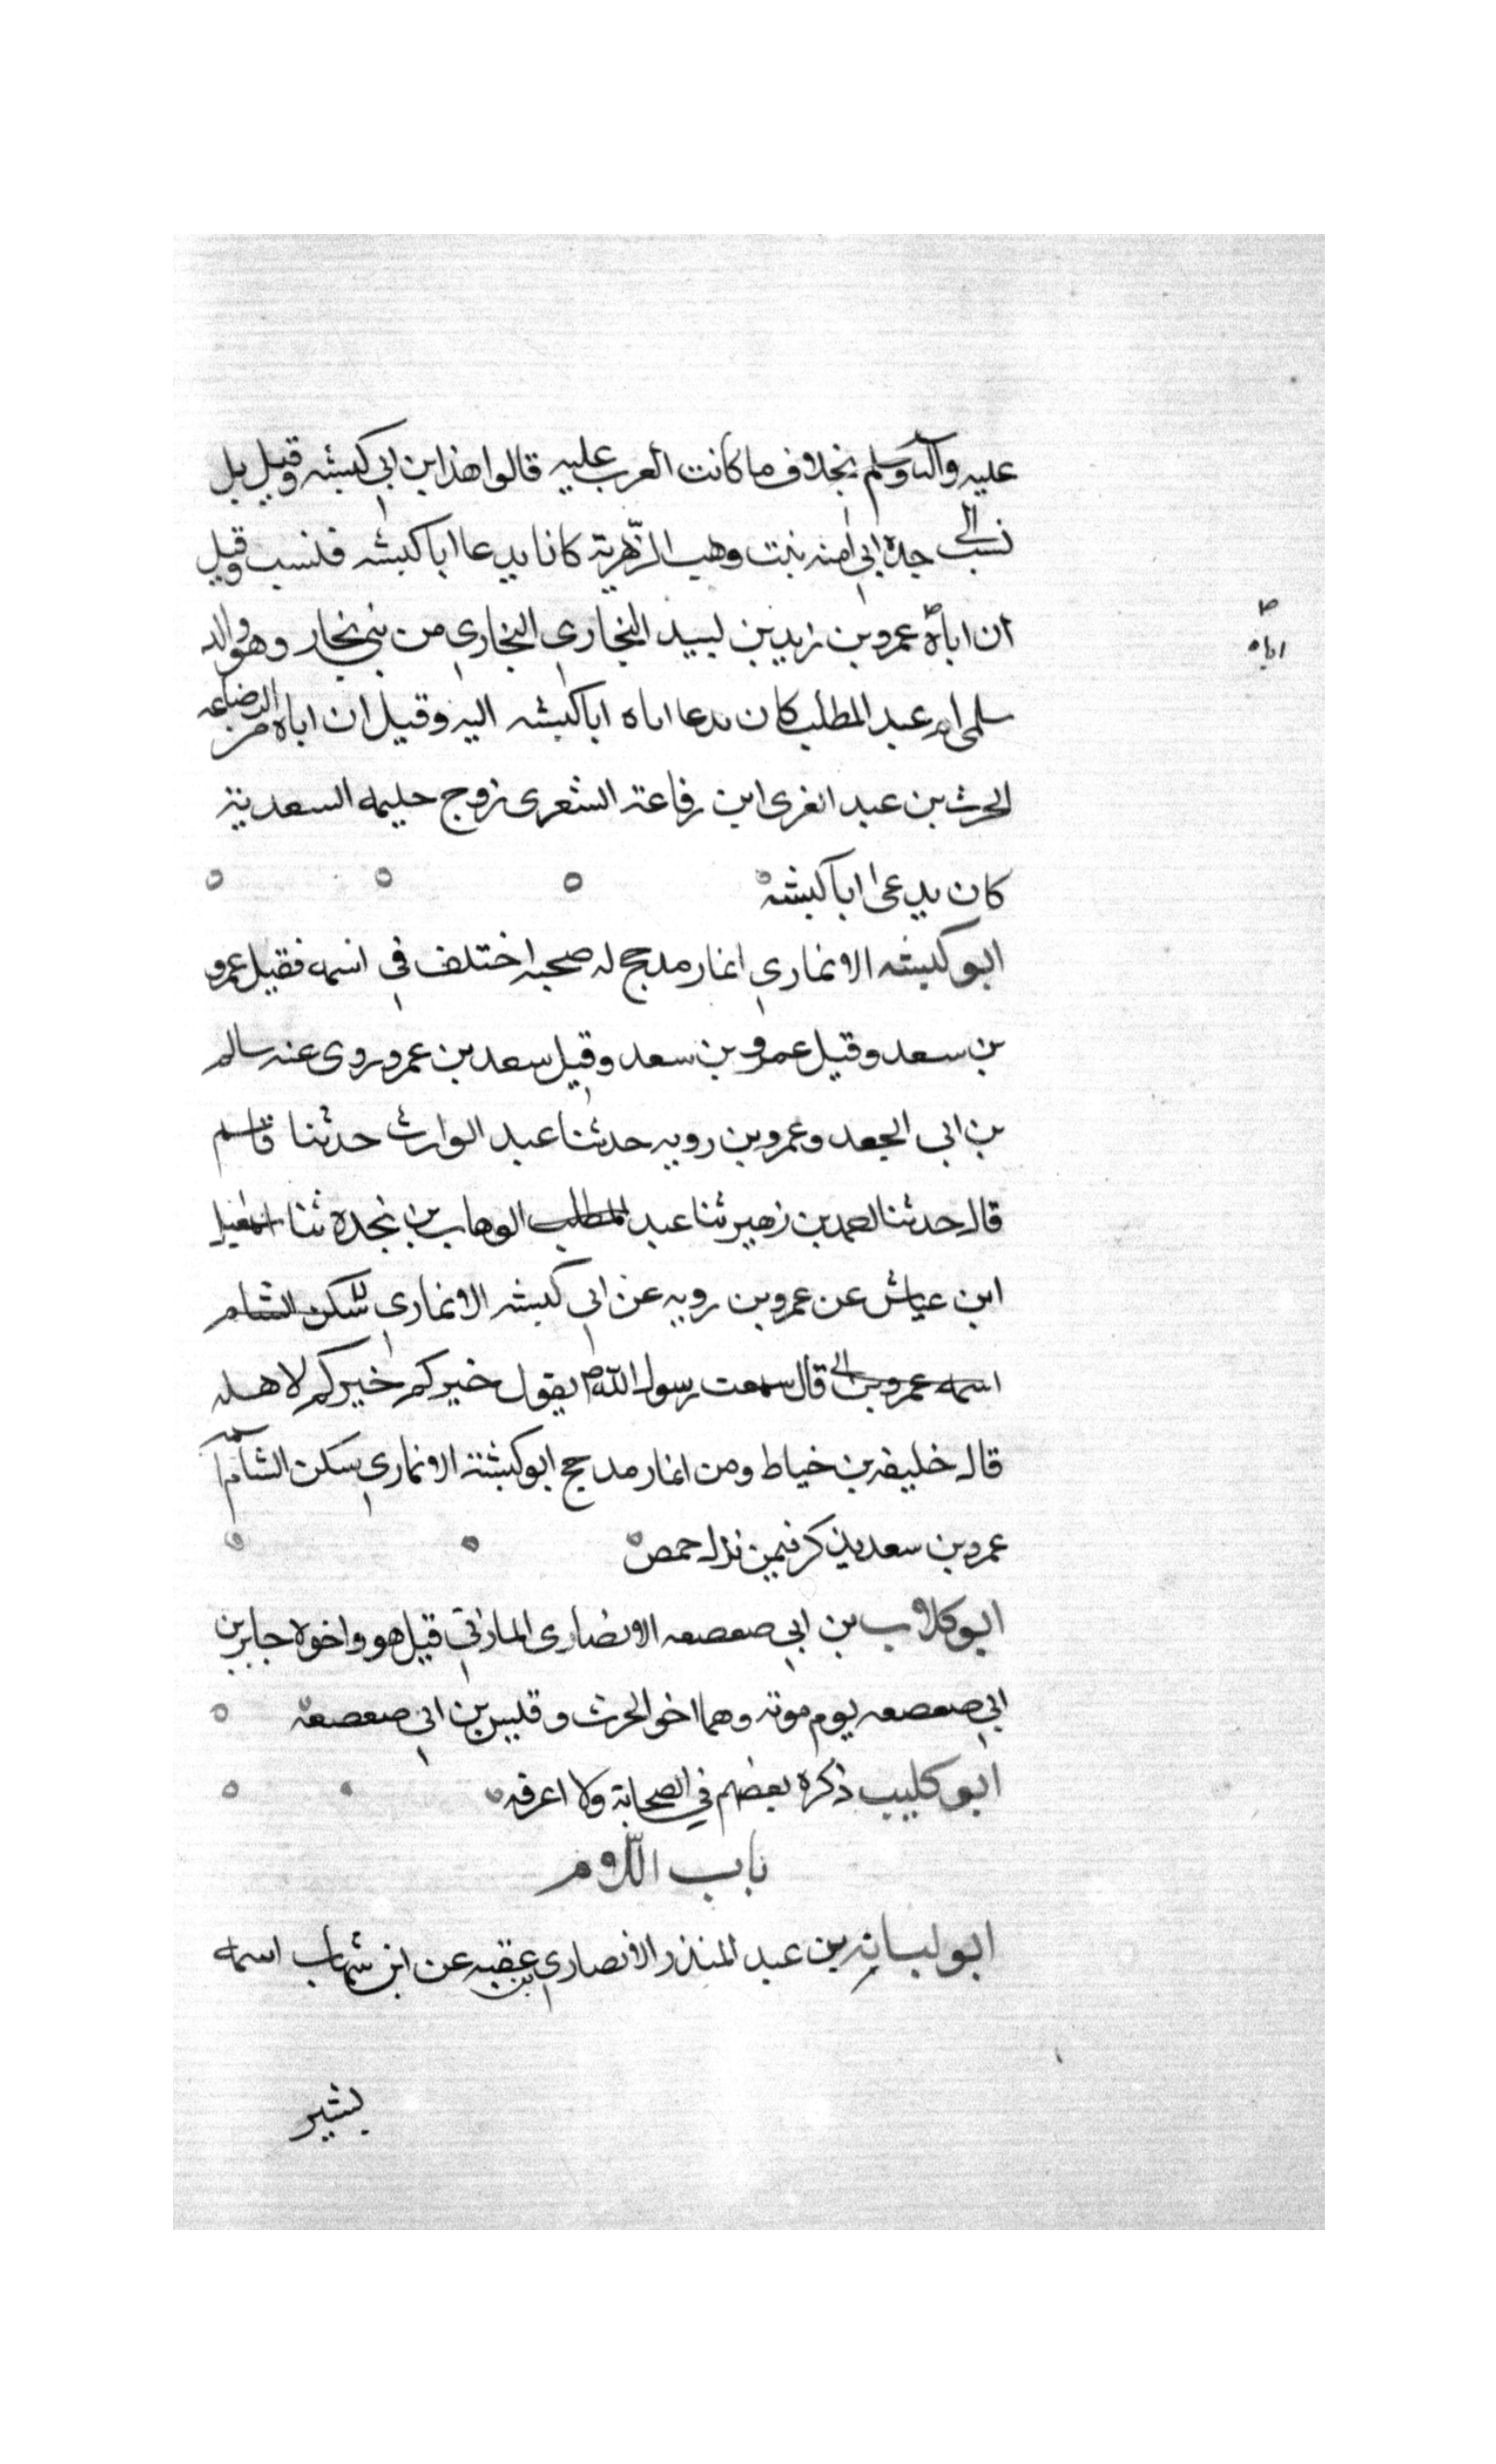 عليه وآله وسلم بخلاف ما كانت العرب عليه قالوا هذا ابن ابي كبشه وقيل بل
نسب الى جده ابي امنه بنت وهب الزهرية كانا يدعا ابا كبشه فنسب وقيل
ان اباه عمرو بن زيد بن لبيد النجاري النجاري من بني نجار وهو والد
اباه
سلمى ام عبد المطلب كان يدعا اباه ابا كبشه اليه وقيل ان اباه من الرضاعه
الحرث بن عبد العزى ابن رفاعة الشعرى زوج حليمه السعدية
كان يدعى ابا كبشه
ابو كبشه الانماري انمار مدجح له صحبه اختلف في اسمه فقيل عمرو
بن سعد وقيل عمرو بن سعد وقيل سعد بن عمرو روى عنه سالم
بن ابي الجعد وعمرو بن رويه حدثنا عبد الوارث حدثنا قاسم
قال حدثنا احمد بن زهير ثنا عبد المطلب الوهاب بن نجده ثنا اسمعيل
ابن عياش عن عمرو بن رويه عن ابي كبشه الانماري سكن الشام
اسمه عمرو بن قال سمعت رسول الله ص يقول خيركم خيركم لاهله
قال خليفه بن خياط ومن انمار مدجح ابو كبشة الانماري سكن الشام
عمرو بن سعد يذكر فيمن نزل حمص
ابو كلاب بن ابي صعصعه الانصارى المازني قيل هو واخوه جابر بن
ابي صعصعه يوم موته وهما اخو الحرث وقيس بن ابي صعصعه
ابو كليب ذكره بعضهم في الصحابة ولا اعرفه
باب اللام
ابو لبابه بن عبد المنذر الانصاري بن عقبه عن ابن شهاب اسمه
بشير